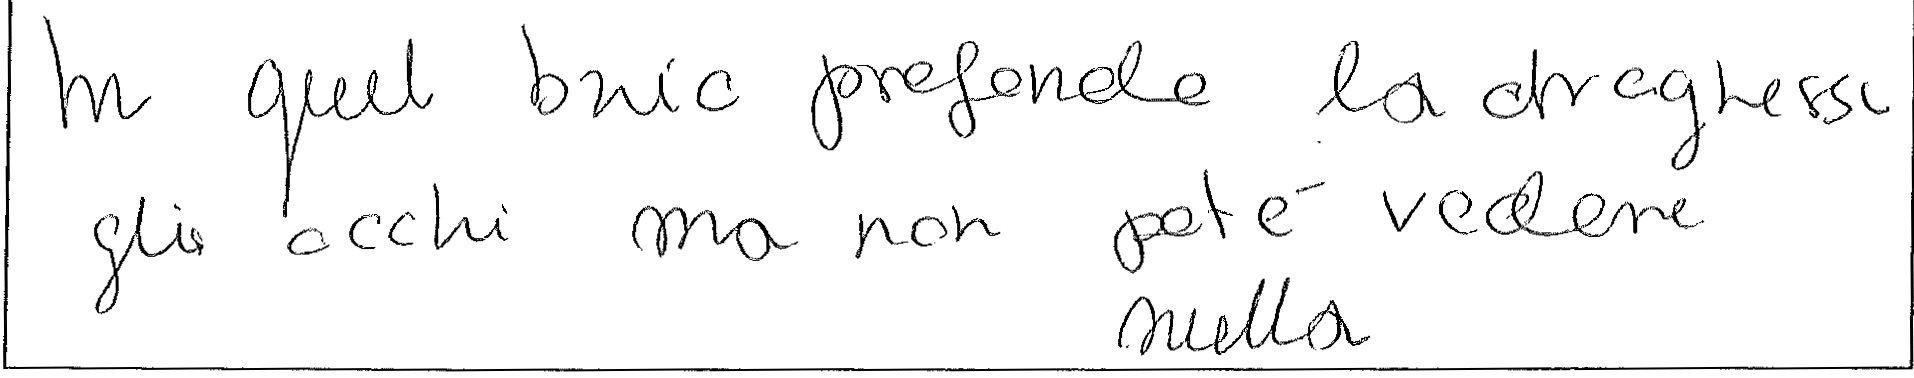 In quel buio profondo la draghessa
glio occhi ma non poté vedere
nulla